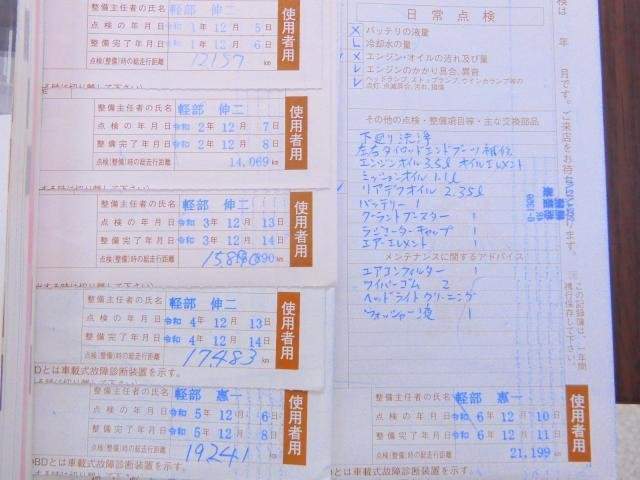 整備主任者の氏名 軽部 伸二
点検の年月日 令和 1年 12月 5日
整備完了年月日 令和 1年 12月 6日
点検(整備)時の総走行距離 12157 km
使用者用
整備主任者の氏名 軽部 伸二
点検の年月日 令和 2年 12月 7日
整備完了年月日 令和 2年 12月 8日
点検(整備)時の総走行距離 14,069 km
使用者用
整備主任者の氏名 軽部 伸二
点検の年月日 令和 3年 12月 13日
整備完了年月日 令和 3年 12月 14日
点検(整備)時の総走行距離
使用者用
整備主任者の氏名 軽部 伸二
点検の年月日 令和 4年 12月 13日
整備完了年月日 令和 4年 12月 14日
点検(整備)時の総走行距離 17483 km
使用者用
とは車載式故障診断装置を示す。
整備主任者の氏名 軽部 惠一
点検の年月日 令和 5年 12月 6日
整備完了年月日 令和 5年 12月 8日
点検(整備)時の総走行距離 19241 km
使用者用
OBDとは車載式故障診断装置を示す。
日常点検
バッテリの液量
冷却水の量
エンジン・オイルの汚れ及び量
エンジンのかかり具合、異音
ヘッドランプ、ストップランプ、ウインカランプ等の
点灯、点滅具合、汚れ、損傷
その他の点検・整備項目等・主な交換部品
下廻り洗浄
左右タイロッドエンドブーツ
エンジンオイル 3.5ℓ オイルエレメント
ミッションオイル
リアデフオイル 2.35ℓ
バッテリー 1
クーラントブースター 1
ラジエーターキャップ 1
エアーエレメント 1
メンテナンスに関するアドバイス
エアコンフィルター 1
ワイパーゴム 2
ヘッドライトクリーニング
ウォッシャー液 1
整備主任者の氏名 軽部 惠一
点検の年月日 令和 6年 12月 10日
整備完了年月日 令和 6年 12月 11日
点検(整備)時の総走行距離 21,199 km
使用者用
OBDとは車載式故障診断装置を示す。
検は 年 月です。ご来店をお待ち
この記録簿は、一年間
携行保存して下さい。